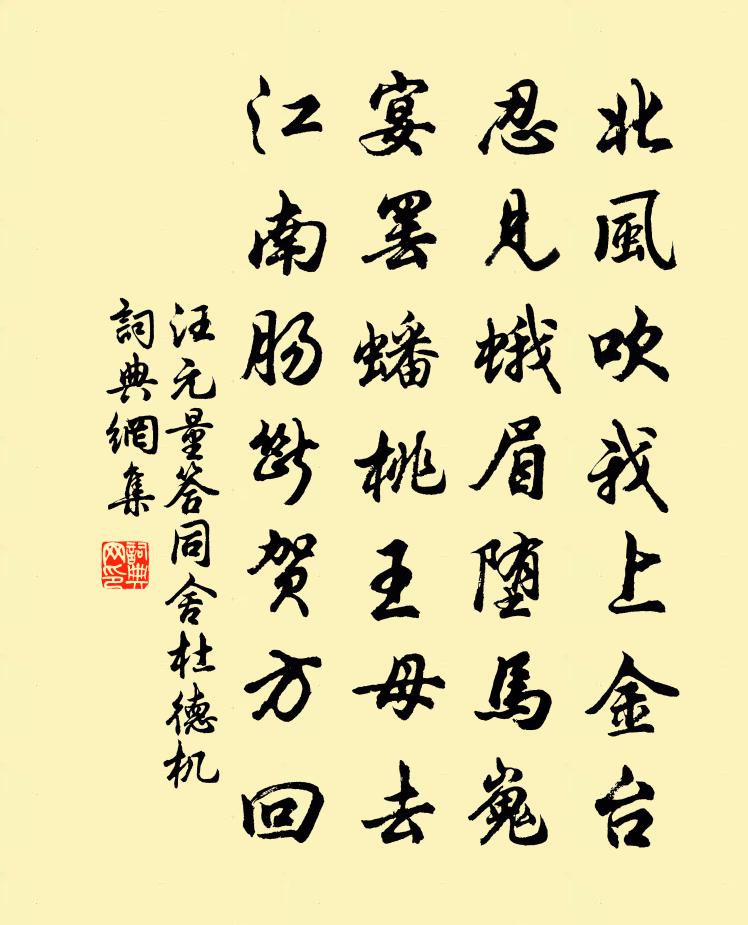 北風吹我上金台
忍見蛾眉墮馬嵬
宴罢蟠桃王母去
江南肠斷賀方回
汪元量答同舍杜德机
詞典網集
詞典网印